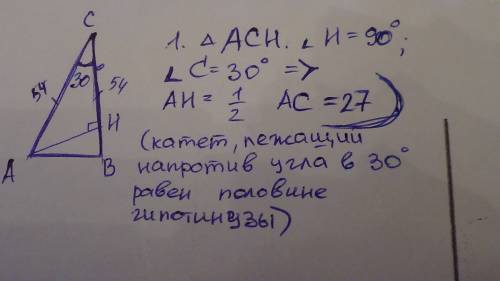 C
54
30
54
H
A
B
1. △ ACH. ∠ H = 90°;
∠ C = 30° =>
AH = 1/2 AC = 27
(катет, лежащий
напротив угла в 30°
равен половине
гипотинузы)